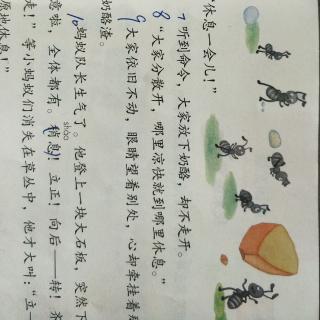 “休息一会儿！”
7 听到命令，大家放下奶酪，却不走开。
8 “大家分散开，哪里凉快就到哪里休息。”
9 大家依旧不动，眼睛望着别处，心却牵挂着
奶酪渣。
10 蚂蚁队长生气了。他登上一块大石板，突然下
意啦，全体都有。稍息！立正！向后——转！齐
shào
走！”等小蚂蚁们消失在草丛中，他才大叫：“立
原地休息！”